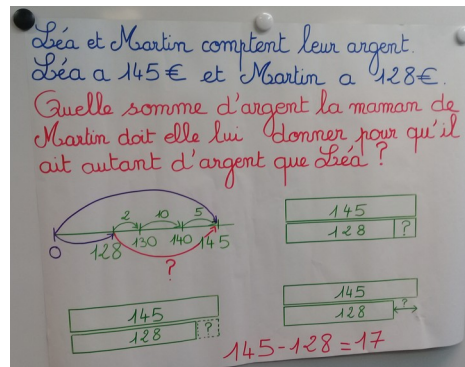 Léa et Martin comptent leur argent.
Léa a 145 € et Martin a 128 €.
Quelle somme d'argent la maman de
Martin doit elle lui donner pour qu'il
ait autant d'argent que Léa ?
2 10 5
0 128 130 140 145
?
145
128 ?
145
128 ?
145
128 ?
145-128=17